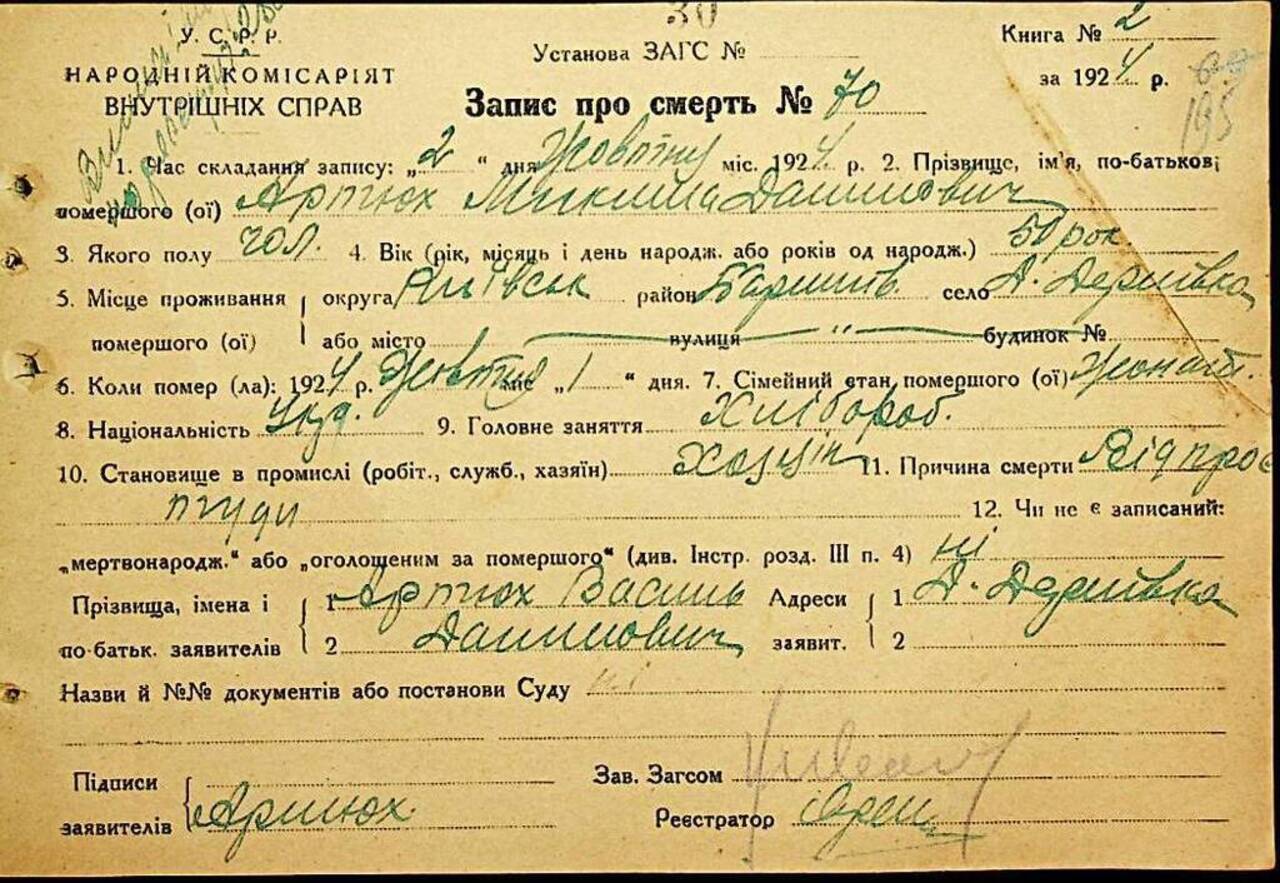 30
У. С. Р. Р.
НАРОДНІЙ КОМІСАРІЯТ
ВНУТРІШНІХ СПРАВ
Установа ЗАГС №
Книга № 2
за 1924 р.
195
Запис про смерть № 70
1. Час складання запису: „2“ дня Жовтня міс. 1924 р. 2. Прізвище, ім'я, по-батькові
помершого (ої) Артюх Микита Данилович
3. Якого полу чол. 4. Вік (рік, місяць і день народж. або років од народж.) 50 рок.
5. Місце проживання помершого (ої) округа Київськ район Баришів село Д. Дернівка
або місто вулиця " будинок №
6. Коли помер (ла): 1924 р. Жовтня міс „1“ дня. 7. Сімейний стан помершого (ої) Жонат.
8. Національність Укр. 9. Головне заняття Хлібороб.
10. Становище в промислі (робіт., служб., хазяїн) Хазяїн 11. Причина смерти Від прос
туди 12. Чи не є записаний:
„мертвонародж.“ або „оголошеним за помершого“ (див. Інстр. розд. III п. 4) ні
Прізвища, імена і по-батьк. заявителів 1 Артюх Василь Адреси заявит. 1 Д. Дернівка
2 Данилович 2
Назви й №№ документів або постанови Суду ні
Підписи заявителів Артюх
Зав. Загсом
Реєстратор